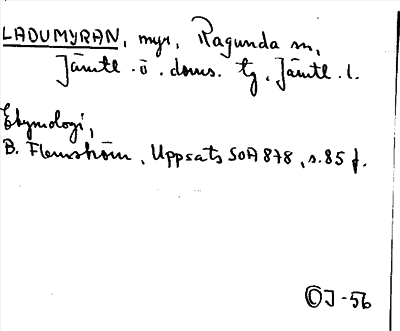 LADUMYRAN, myr, Ragunda sn,
Jämtl. ö. doms. tg. Jämtl. l.
Etymologi,
B. Flemström, Uppsats SOA 878, s. 85 f.
OJ-56